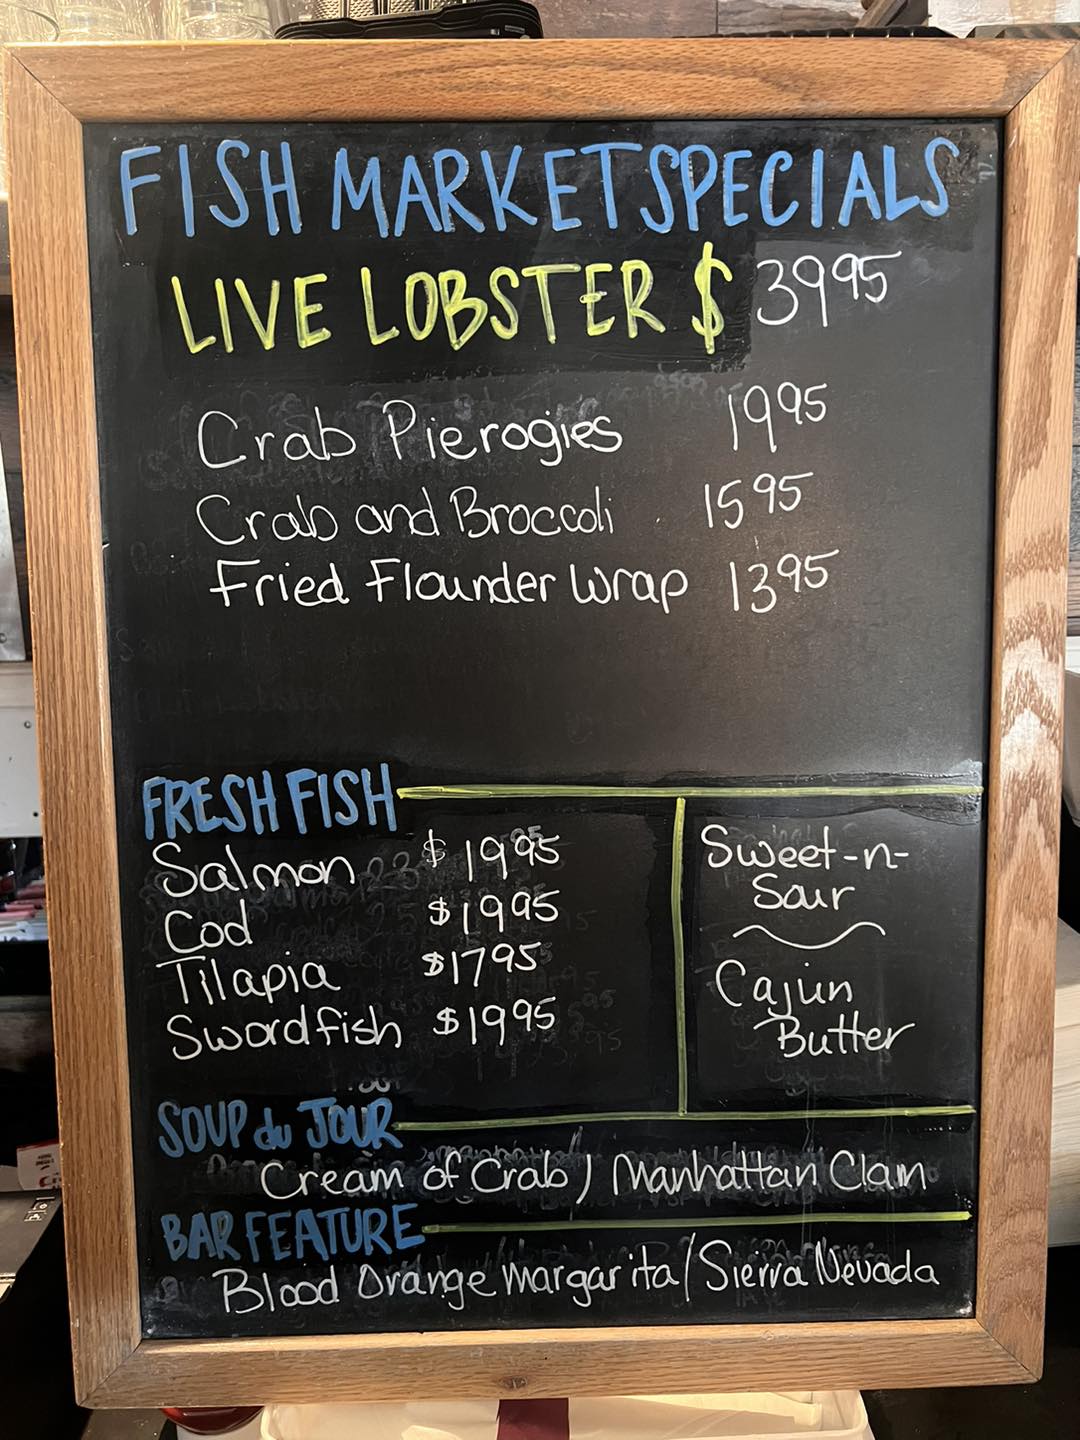 FISH MARKET SPECIALS
LIVE LOBSTER $ 3995
Crab Pierogies 1995
Crab and Broccoli 1595
Fried Flounder Wrap 1395
FRESH FISH
Salmon $1995
Cod $1995
Tilapia $1795
Swordfish $1995
Sweet-n-
Sour
Cajun
Butter
SOUP du JOUR
Cream of Crab / Manhattan Clam
BAR FEATURE
Blood Orange Margarita / Sierra Nevada